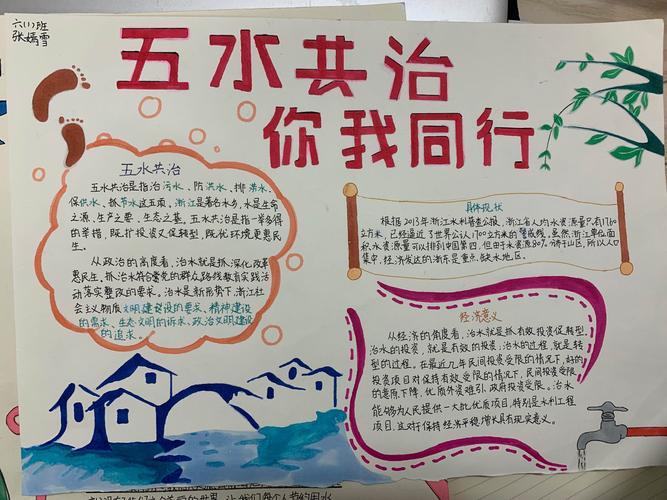 六(1)班
张嫣雪
五水共治
你我同行
五水共治
五水共治是指治污水、防洪水、排涝水、
保供水、抓节水这五项,浙江是著名水乡,水是生命
之源、生产之要、生态之基。五水共治是指一举多得
的举措,既扩投资又促转型,既优环境更惠民
生。
从政治的高度看,治水就是抓深化改革
惠民生。抓治水符合党的群众路线教育实践活
动落实整改的要求。治水是新形势下,浙江社
会主义物质文明建设的要求、精神建设
的需求、生态文明的诉求、政治文明建设
的追求。
具体现状
根据2013年浙江水利普查公报,浙江省人均水资源只有1760
立方米,已经逼近了世界公认1700立方米的警戒线。虽然,浙江单位面
积水资源量可以排到中国第四,但由于水资源80%分布于山区,所以人口
集中,经济发达的浙东是重点缺水地区。
经济意义
从经济的角度看,治水就是抓有效投资促转型,
治水的投资,就是有效的投资;治水的过程,就是转
型的过程。在最近几年民间投资受限的情况下,好的
投资项目对保持有效受限的情况下,民间投资受限
的意愿下降,优质外资难引,政府投资受限。治水
能够为人民提供一大批优质项目,特别是水利工程
项目,这对于保持经济平稳增长具有现实意义。